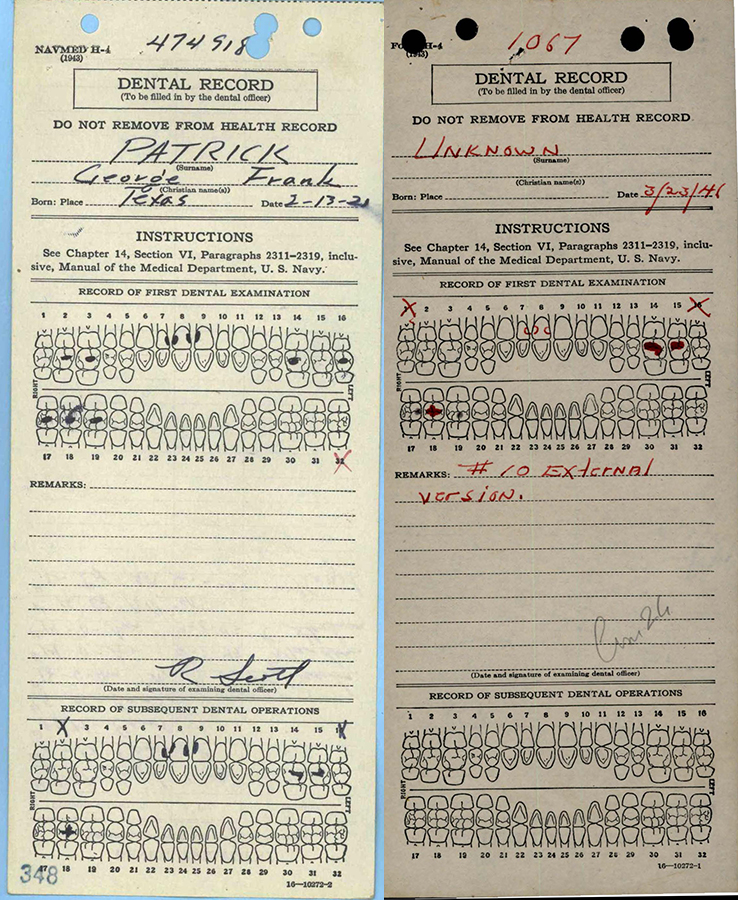 NAVMED H-4
(1943)
474918
DENTAL RECORD
(To be filled in by the dental officer)
DO NOT REMOVE FROM HEALTH RECORD
PATRICK
(Surname)
George Frank
(Christian name(s))
Born: Place Texas Date 2-13-21
INSTRUCTIONS
See Chapter 14, Section VI, Paragraphs 2311–2319, inclu-
sive, Manual of the Medical Department, U. S. Navy.
RECORD OF FIRST DENTAL EXAMINATION
1 2 3 4 5 6 7 8 9 10 11 12 13 14 15 16
RIGHT LEFT
17 18 19 20 21 22 23 24 25 26 27 28 29 30 31 32
REMARKS:
R Scott
(Date and signature of examining dental officer)
RECORD OF SUBSEQUENT DENTAL OPERATIONS
1 X 3 4 5 6 7 8 9 10 11 12 13 14 15 X
RIGHT LEFT
17 18 19 20 21 22 23 24 25 26 27 28 29 30 31 32
348
16—10272-2
H-4
(1943)
1067
DENTAL RECORD
(To be filled in by the dental officer)
DO NOT REMOVE FROM HEALTH RECORD
UNKNOWN
(Surname)
(Christian name(s))
Born: Place Date 3/23/46
INSTRUCTIONS
See Chapter 14, Section VI, Paragraphs 2311–2319, inclu-
sive, Manual of the Medical Department, U. S. Navy.
RECORD OF FIRST DENTAL EXAMINATION
1 2 3 4 5 6 7 8 9 10 11 12 13 14 15 16
RIGHT LEFT
17 18 19 20 21 22 23 24 25 26 27 28 29 30 31 32
REMARKS: #10 External
version.
(Date and signature of examining dental officer)
RECORD OF SUBSEQUENT DENTAL OPERATIONS
1 2 3 4 5 6 7 8 9 10 11 12 13 14 15 16
RIGHT LEFT
17 18 19 20 21 22 23 24 25 26 27 28 29 30 31 32
16—10272-1